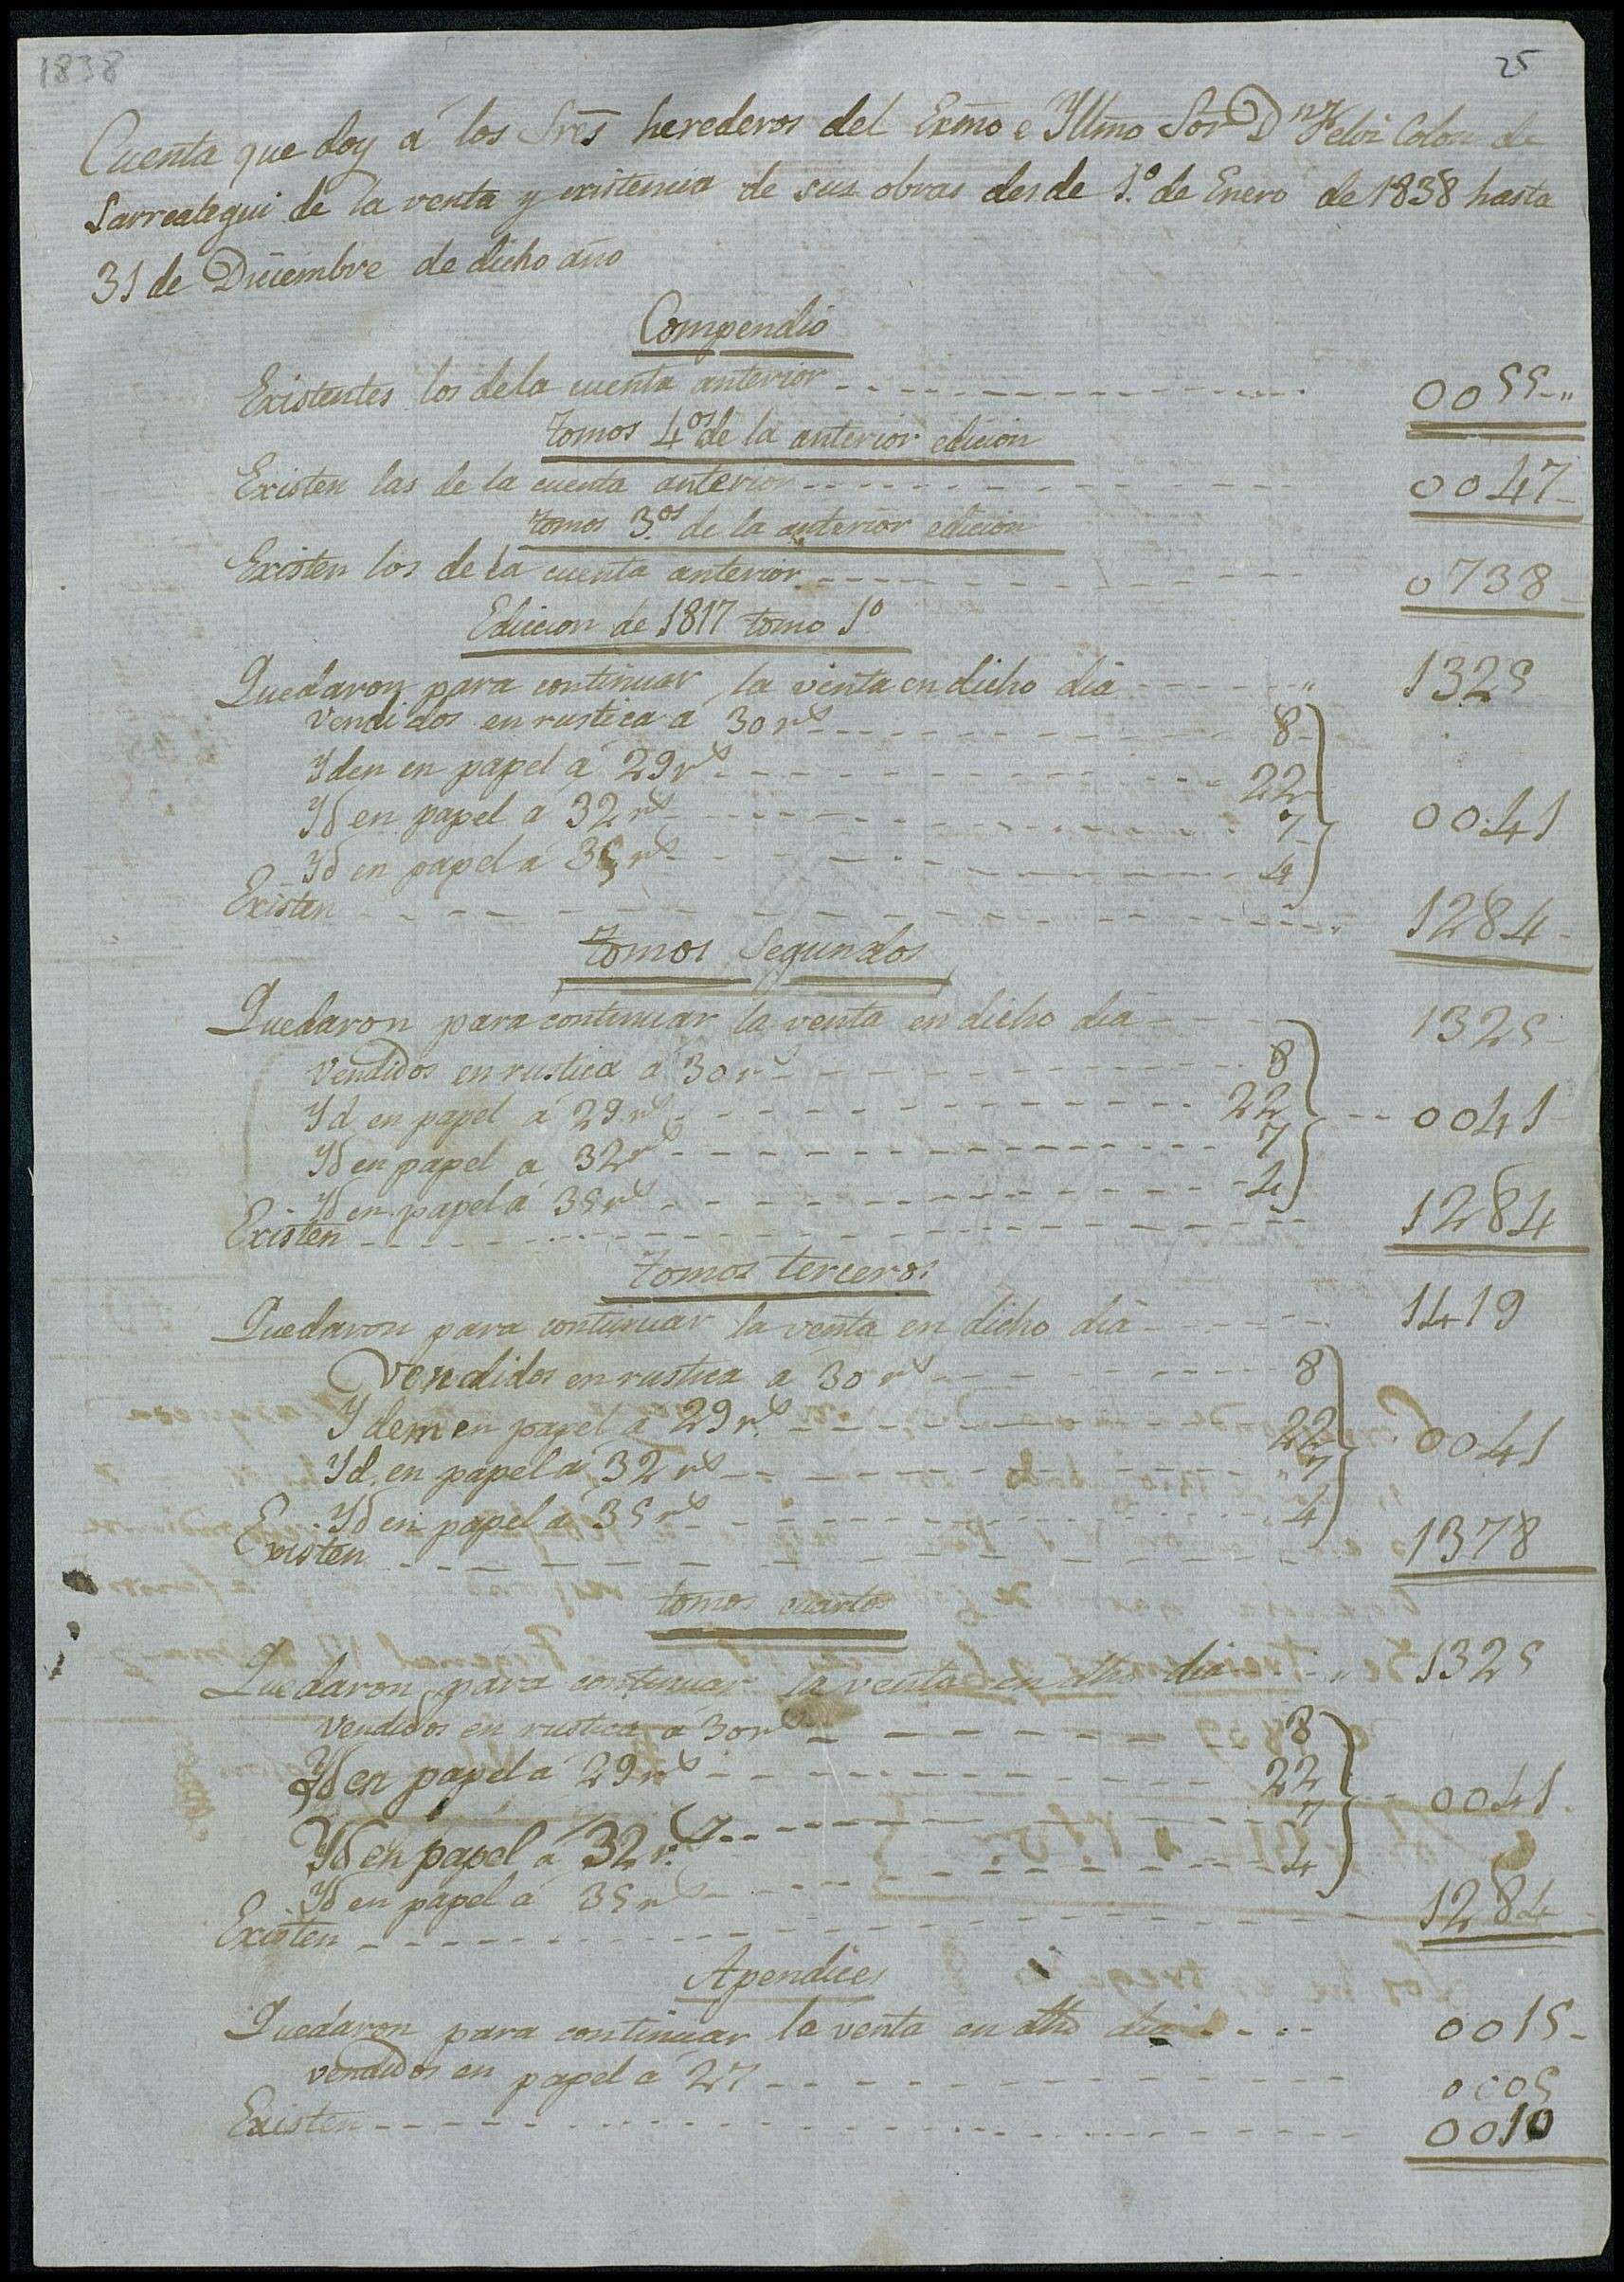 1838
25
Cuenta que doy á los Sres herederos del Exmo e Yllmo Sor Dn Felix Colon de
Larreategui de la venta y existencia de sus obras desde 1.º de Enero de 1838 hasta
31 de Diciembre de dicho año
Compendio
Existentes los dela cuenta anterior 0055
tomos 4os de la anterior edicion
Existen las de la cuenta anterior 0047
tomos 3.os de la anterior edicion
Existen los de la cuenta anterior 0738
Edicion de 1817 tomo 1º
Quedaron para continuar la venta en dicho dia 1325
Vendidos en rustica a 30 rs 8
Yden en papel a 29 rs 22
Yd en papel a 32 rs 7 0041
Yd en papel a 35 rs 4
Existen 1284
tomos Segundos
Quedaron para continuar la venta en dicho dia 1325
Vendidos en rustica a 30 rs 8
Yd en papel a 29 rs 22 0041
Yd en papel a 32 rs 7
Yd en papel a 35 rs 4
Existen 1284
tomos terceros
Quedaron para continuar la venta en dicho dia 1419
Vendidos en rustica a 30 rs 8
Ydem en papel a 29 rs 22 0041
Yd. en papel a 32 rs 7
Yd en papel a 35 rs 4
Existen 1378
tomos cuartos
Quedaron para continuar la venta en dho dia 1325
Vendidos en rustica a 30 rs 8
Yd en papel a 29 rs 22 0041
Yd en papel a 32 rs 7
Yd en papel a 35 rs 4
Existen 1284
Apendices
Quedaron para continuar la venta en dho dia 0015
vendidos en papel a 27 0005
Existen 0010